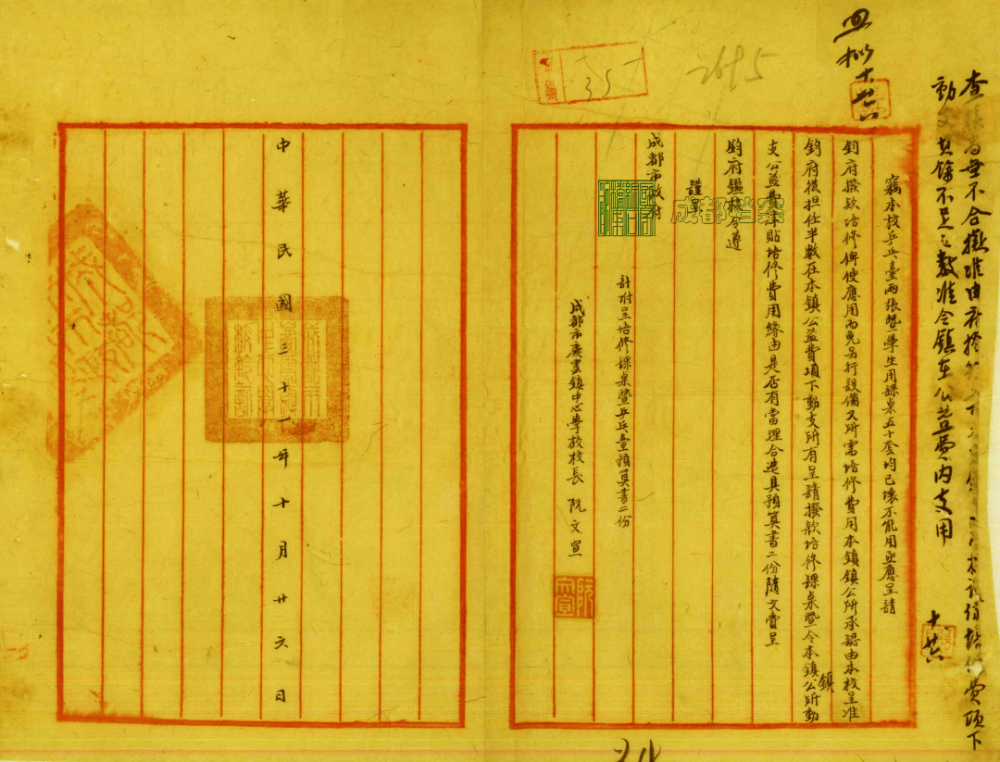 照拟 十廿八
查 尚無不合擬准由府撥給 培修費項下
動支其餘不足之數准令鎮在公益費內支用
十廿八
竊本校乒乓臺兩張暨學生用課桌五十套均已壞不能用亟應呈請
鈞府撥款培修俾便應用而免另行設備又所需培修費用本鎮鎮公所承認由本校呈准
鈞府後担任半數在本鎮公益費項下動支所有呈請撥款培修課桌暨令本鎮鎮公所動
支公益費津貼培修費用緣由是否有當理合造具預算書二份隨文賫呈
鈞府鑒核令遵
謹呈
成都市政府
計附呈培修課桌暨乒乓臺預算書二份
成都市慶雲鎮中心學校校長 阮文宣
阮文宣
中華民國三十一年十月廿六日
35
2695
成都档案